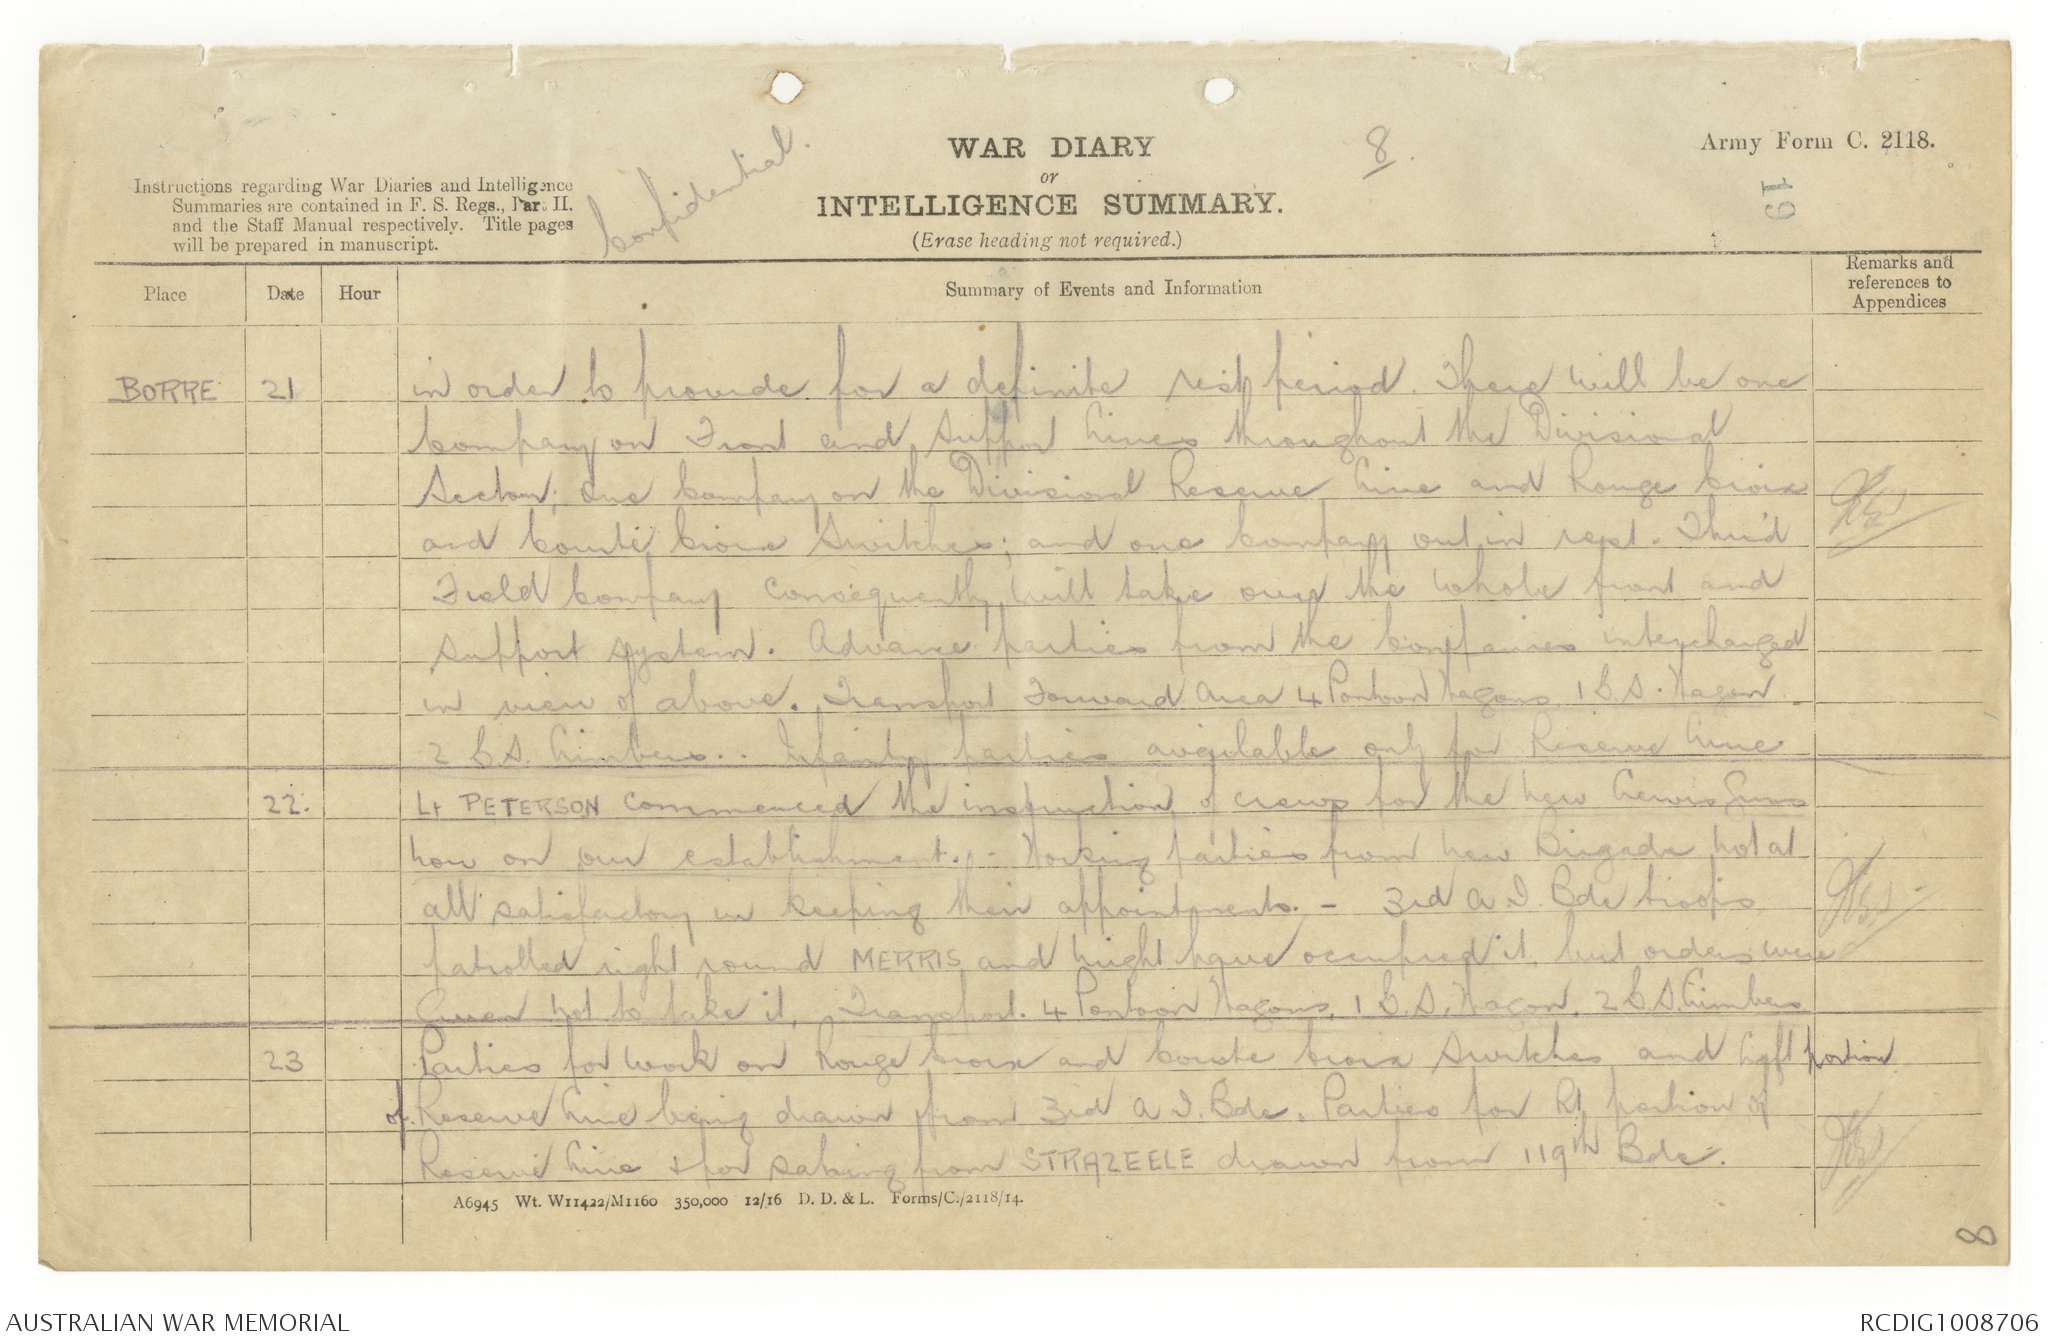 Confidential.
WAR DIARY
or
INTELLIGENCE SUMMARY.
(Erase heading not required.)
8.
Army Form C. 2118.
19
Instructions regarding War Diaries and Intelligence
Summaries are contained in F. S. Regs., Part II.
and the Staff Manual respectively. Title pages
will be prepared in manuscript.
Place Date Hour Summary of Events and Information Remarks and references to Appendices
BORRE 21 in order to provide for a definite rest period. There will be one
Company on Front and Support Lines throughout the Divisional
Sector; one Company on the Divisional Reserve Line and Rouge Croix
and Courte Croix Switches; and one Company out in rest. Third
Field Company consequently will take over the whole front and
support system. Advance parties from the Companies interchanged
in view of above. Transport Forward Area 4 Pontoon Wagons, 1 G.S. Wagon
2 G.S. Limbers.. Infantry parties available only for Reserve Line
22. Lt PETERSON commenced the instruction of crews for the new Lewis Guns
now on our establishment. - Working parties from new Brigade not at
all satisfactory in keeping their appointments. - 3rd A.I. Bde troops
patrolled right round MERRIS and might have occupied it, but orders were
given not to take it. Transport. 4 Pontoon Wagons, 1 G.S. Wagon, 2 G.S. Limbers
23 Parties for work on Rouge Croix and Courte Croix Switches and Left portion
of Reserve Line being drawn from 3rd A.I. Bde. Parties for Rt portion of
Reserve Line & for salving from STRAZEELE drawn from 119th Bde.
A6945 Wt. W11422/M1160 350,000 12/16 D. D. & L. Forms/C./2118/14.
8
AUSTRALIAN WAR MEMORIAL
RCDIG1008706